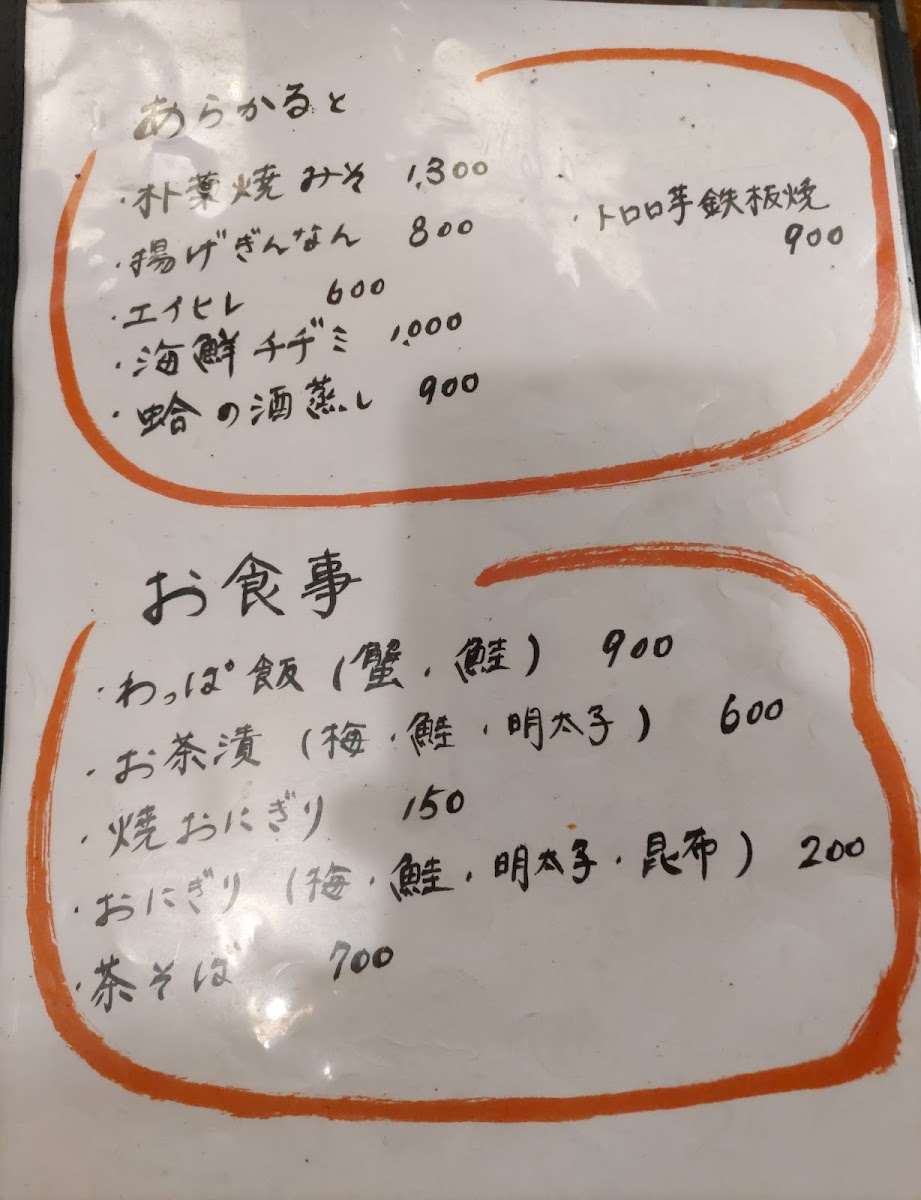 あらかると
・朴葉焼みそ 1,300
・揚げぎんなん 800
・エイヒレ 600
・海鮮チヂミ 1,000
・蛤の酒蒸し 900
・トロロ芋鉄板焼
900
お食事
・わっぱ飯(蟹・鮭) 900
・お茶漬(梅・鮭・明太子) 600
・焼おにぎり 150
・おにぎり(梅・鮭・明太子・昆布) 200
・茶そば 700